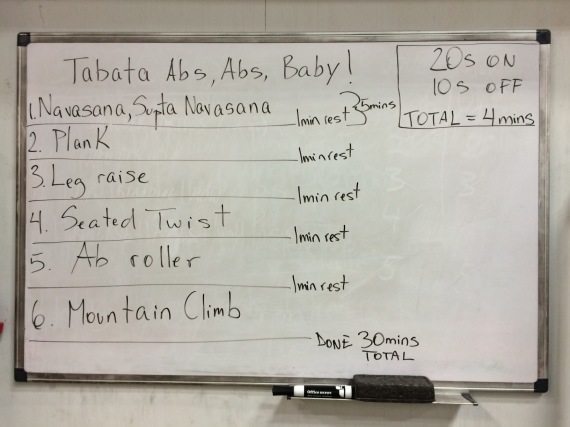 Tabata Abs, Abs, Baby!
20s ON
10s OFF
TOTAL = 4mins
1. Navasana, Supta Navasana
1min rest
5mins
2. Plank
1min rest
3. Leg raise
1min rest
4. Seated Twist
1min rest
5. Ab roller
1min rest
6. Mountain Climb
DONE 30mins
TOTAL
Office DEPOT